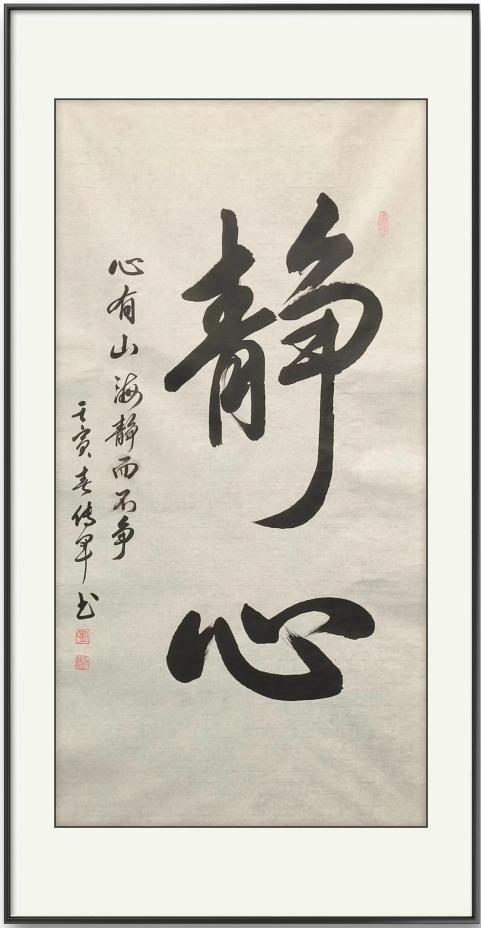 静心
心有山海静而不争
壬寅春传军书